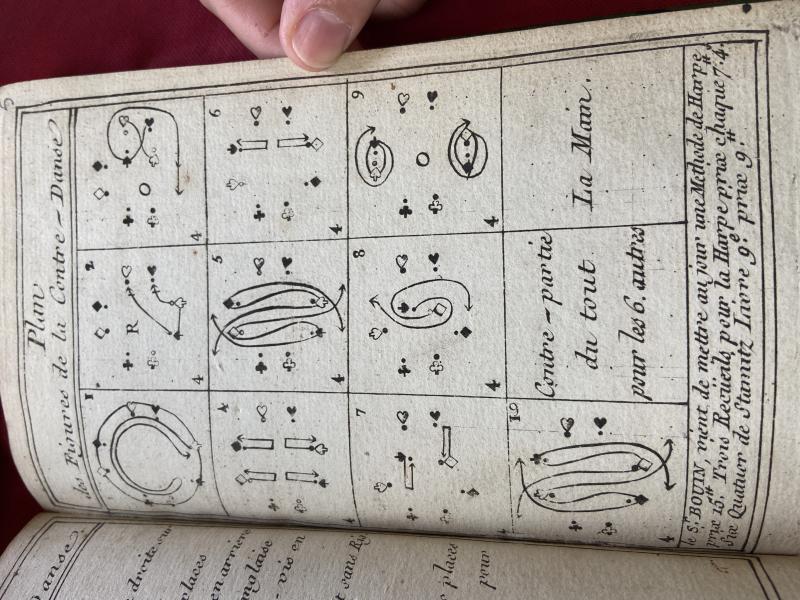 Plan
des Figures de la Contre-Danse
1
2
R
4
4
5
4
6
4
7
8
4
9
4
10
4
Contre-partie
du tout
pour les 6. autres
La Main.
le Sr. BOUIN, vient de mettre au jour une Methode de Harpe,
prix 15.tt Trois Recueils, pour la Harpe prix chaque 7.tt 4.
Six Quatuor de Stamitz Livre 9e. prix 9.tt
Danse.
droite
places
en arriere
molaise
vis en
places
pour